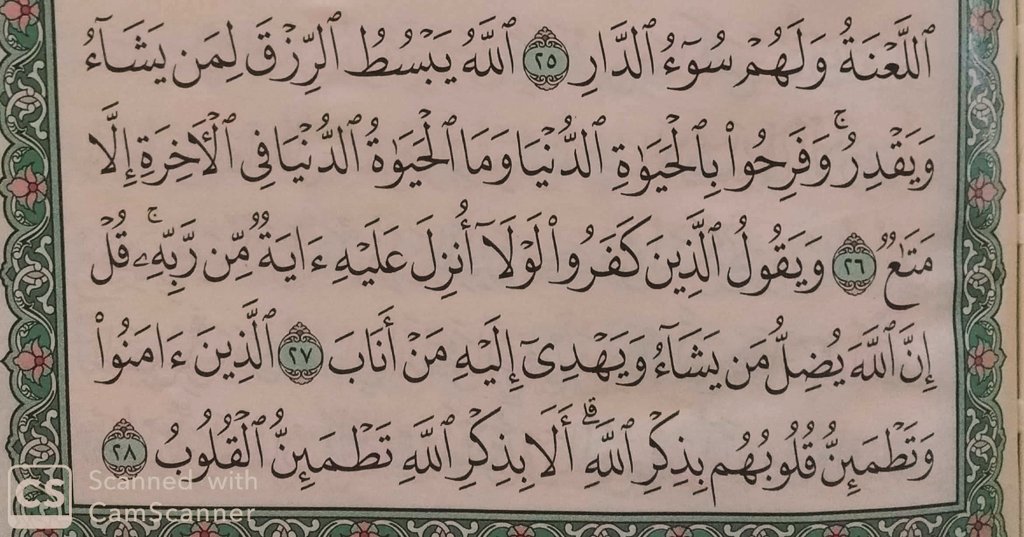 ٱللَّعۡنَةُ وَلَهُمۡ سُوٓءُ ٱلدَّارِ ٢٥ ٱللَّهُ يَبۡسُطُ ٱلرِّزۡقَ لِمَن يَشَآءُ
وَيَقۡدِرُۚ وَفَرِحُواْ بِٱلۡحَيَوٰةِ ٱلدُّنۡيَا وَمَا ٱلۡحَيَوٰةُ ٱلدُّنۡيَا فِي ٱلۡأٓخِرَةِ إِلَّا
مَتَٰعٞ ٢٦ وَيَقُولُ ٱلَّذِينَ كَفَرُواْ لَوۡلَآ أُنزِلَ عَلَيۡهِ ءَايَةٞ مِّن رَّبِّهِۦۚ قُلۡ
إِنَّ ٱللَّهَ يُضِلُّ مَن يَشَآءُ وَيَهۡدِيٓ إِلَيۡهِ مَنۡ أَنَابَ ٢٧ ٱلَّذِينَ ءَامَنُواْ
وَتَطۡمَئِنُّ قُلُوبُهُم بِذِكۡرِ ٱللَّهِۗ أَلَا بِذِكۡرِ ٱللَّهِ تَطۡمَئِنُّ ٱلۡقُلُوبُ ٢٨
CS Scanned with
CamScanner